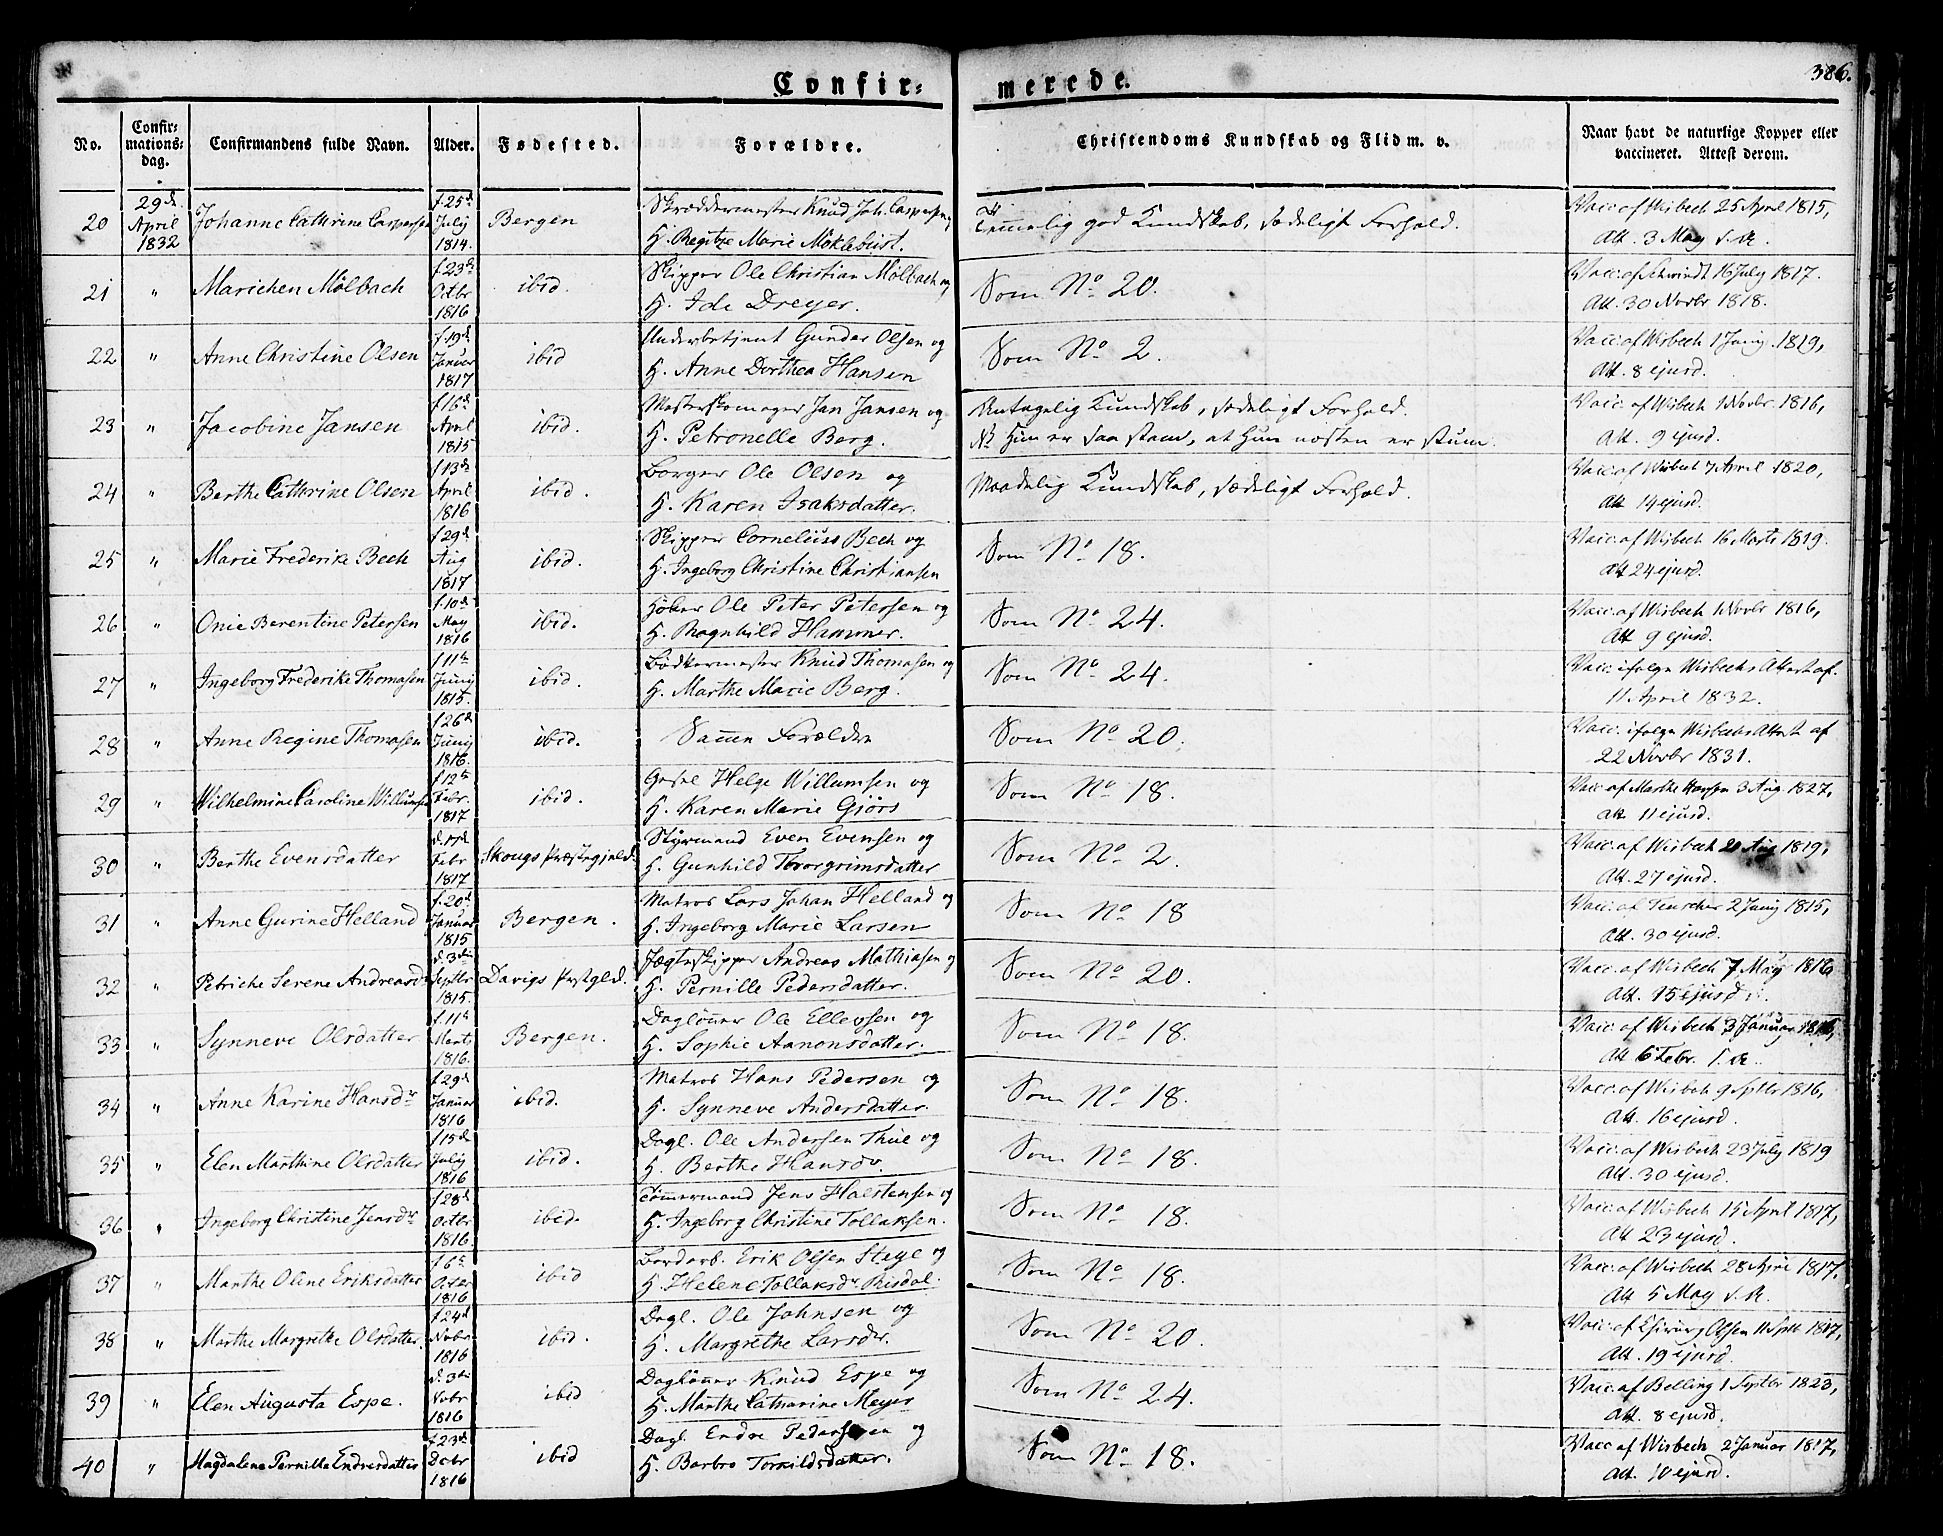 Confir= merede.
386.
No.
Confir=
mations=
dag.
Confirmandens fulde Navn.
Alder.
Fødested.
Forældre.
Christendoms Kundskab og Flid m. v.
Naar havt de naturlige Kopper eller
vaccineret. Attest derom.
20 29de April 1832 Johanne Cathrine Caspersen f. 25de July 1814. Bergen
Skræddermester Knud Joh. Caspersen
H. Regitze Marie Møklebust.
Temmelig god Kundskab, sædeligt Forhold.
Vacc. af Wisbech 25 April 1815,
Att. 3 May s. A.
21 " Marichen Mølbach f. 23de Octbr 1816 ibid.
Skipper Ole Christian Mølbach og
H. Ide Dreyer.
Som No 20.
Vacc. af Schwindt 16 July 1817.
Att. 30 Novbr 1818.
22 " Anne Christine Olsen f. 19de Januar 1817 ibid
Underbetjent Gunder Olsen og
H. Anne Dorthea Hansen
Som No 2.
Vacc. af Wisbech 1 Juny 1819,
Att. 8 ejusd.
23 " Jacobine Jansen f. 16de April 1815 ibid.
Mesterskomager Jan Jansen og
H. Petronelle Berg.
Antagelig Kundskab, sædeligt Forhold.
NB Hun er saa stam, at hun næsten er stum.
Vacc. af Wisbech 1 Novbr 1816,
Att. 9 ejusd.
24 " Berthe Cathrine Olsen f. 13de April 1816 ibid.
Borger Ole Olsen og
H. Karen Isaksdatter.
Maadelig Kundskab, sædeligt Forhold.
Vacc. af Wisbech 7 April 1820,
Att 14 ejusd.
25 " Marie Frederike Bech f. 29de Aug 1817 ibid.
Skipper Cornelius Bech og
H. Ingeborg Christine Christiansen
Som No 18.
Vacc. af Wisbech 16 Marts 1819.
Att 24 ejusd.
26 " Onie Berentine Petersen f. 10de May 1816 ibid.
Høker Ole Peter Petersen og
H. Ragnhild Hammer.
Som No 24.
Vacc. af Wisbech 1 Novbr 1816,
Att 9 ejusd.
27 " Ingeborg Frederike Thomasen f. 11te Juny 1815. ibid.
Bødkermester Knud Thomasen og
H. Marthe Marie Berg.
Som No 24.
Vacc. ifølge Wisbechs Attest af
11 April 1832.
28 " Anne Regine Thomasen f. 26de Juny 1816. ibid.
Samme Forældre
Som No 20.
Vacc. ifølge Wisbechs Attest af
22 Novbr 1831.
29 " Wilhelmine Caroline Willumsen f. 12te Febr. 1817 ibid.
Helge Willumsen og
H. Karen Marie Gjørs
Som No 18.
Vacc af Marthe Hansen 3 Aug. 1827,
Att 11 ejusd.
30 " Berthe Evensdatter Febr 1817 Skougs Præstegjeld.
Styrmand Even Evensen og
H. Gunhild Thorgrimsdatter
Som No 2.
Vacc. af Wisbech 20 Aug 1819,
Att. 27 ejusd.
31 " Anne Gurine Helland f. 20de Januar 1815 Bergen.
Matros Lars Johan Helland og
H. Ingeborg Marie Larsen
Som No 18
Vacc. af Teuscher 2 Juny 1815,
Att. 30 ejusd.
32 " Petriche Serene Andreasd. d. 3die Septbr 1815. Davigs Prstgld.
Jægteskipper Andreas Mathiasen og
H. Pernille Pedersdatter.
Som No 20.
Vacc. af Wisbech 7 May 1816
Att. 15 ejusd.
33 " Synneve Olsdatter f. 11te Mart. 1816. Bergen.
Dagløner Ole Ellevsen og
H. Sophie Aanonsdatter.
Som No 18.
Vacc af Wisbech 3 Januar 1816,
Att 6 Febr. s. A.
34 " Anne Karine Hansdr f. 29de Januar 1816 ibid.
Matros Hans Pedersen og
H. Synneve Andersdatter.
Som No 18.
Vacc. af Wisbech 9 Septbr 1816,
Att. 16 ejusd.
35 " Elen Marthine Olsdatter f. 15de July 1816 ibid.
Dagl. Ole Andersen Thue og
H. Berthe Hansdr.
Som No 18.
Vacc. af Wisbech 23 July 1819
Att. 30 ejusd.
36 " Ingeborg Christine Jensdr f. 28de Octbr 1816. ibid.
Tømmermand Jens Halstensen og
H. Ingeborg Christine Tollaksen.
Som No 18.
Vacc. af Wisbech 15 April 1817,
Att 23 ejusd.
37 " Marthe Oline Eriksdatter f. 6te Octbr 1816 ibid
Bordarb. Erik Olsen Steye og
H. Helene Tollaksdr Risdal.
Som No 18.
Vacc. af Wisbech 28 Apri 1817,
Att 5 May s. A.
38 " Marthe Margrethe Olsdatter. f. 24de Novbr 1816 ibid.
Dagl. Ole Johnsen og
H. Margrethe Larsdr.
Som No 20.
Vacc. af Chirurg Olsen 11 Septb 1817,
Att. 19 ejusd.
39 " Elen Augusta Espe. d. 3die Novbr 1816 ibid
Dagløner Knud Espe og
H. Marthe Catharine Meyer
Som No 24.
Vacc. af Belling 1 Septbr 1823,
Att. 8 ejusd.
40 " Magdalene Pernille Endresdatter f. 23de Decbr 1816 ibid
Dagl. Endre Pedersen og
H. Barbro Torkildsdatter.
Som No 18.
Vacc af Wisbech 2 Januar 1817,
Att. 10 ejusd.